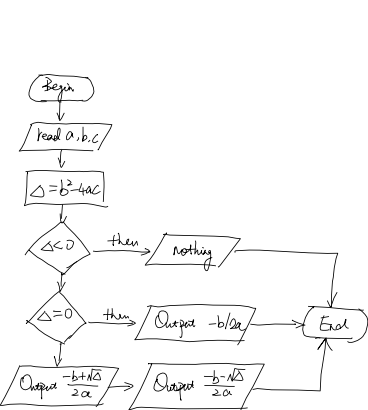 Begin
read a,b,c
△=b²-4ac
△<0
then
nothing
△=0
then
Output -b/2a
End
Output (-b+√△)/2a
Output (-b-√△)/2a